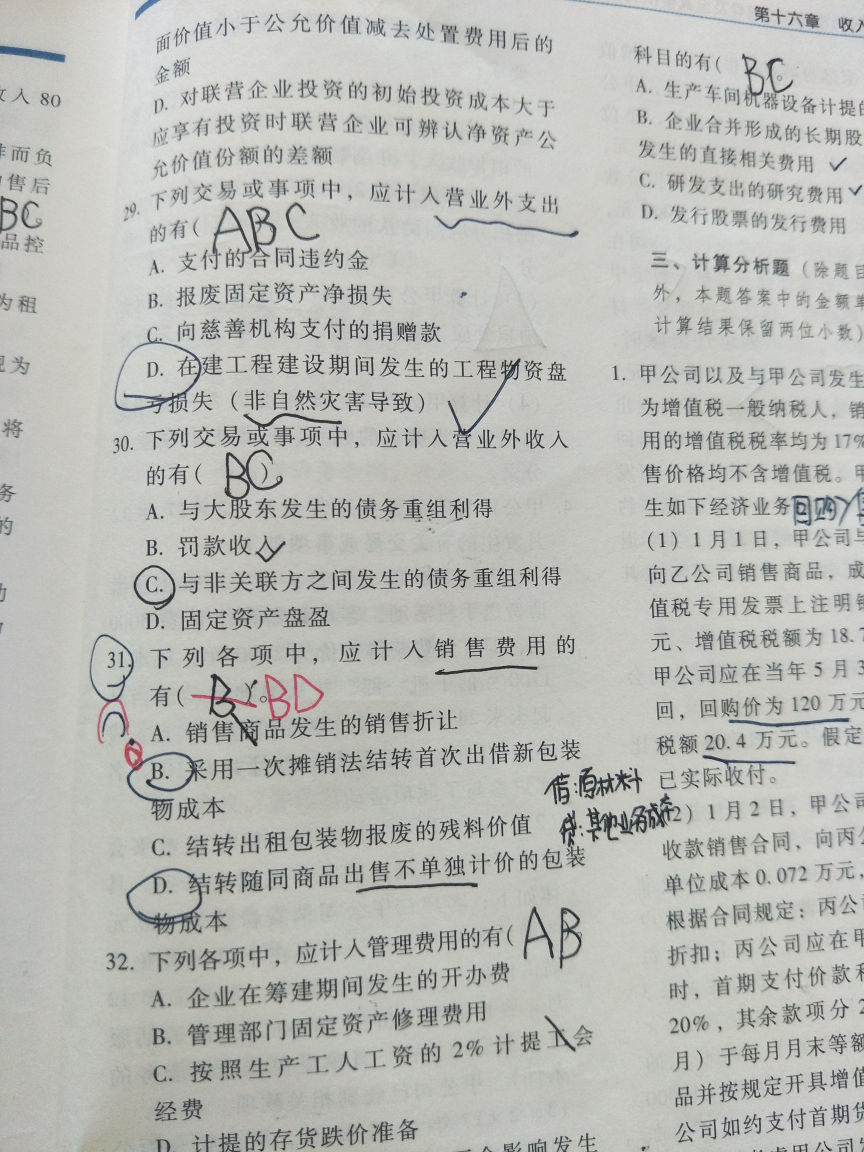 收入 80
售后
BC
品控
为租
将
务
的
面价值小于公允价值减去处置费用后的
金额
D. 对联营企业投资的初始投资成本大于
应享有投资时联营企业可辨认净资产公
允价值份额的差额
29. 下列交易或事项中，应计入营业外支出
的有( ABC
A. 支付的合同违约金
B. 报废固定资产净损失
C. 向慈善机构支付的捐赠款
D. 在建工程建设期间发生的工程物资盘
亏损失（非自然灾害导致）
30. 下列交易或事项中，应计入营业外收入
的有( BC )
A. 与大股东发生的债务重组利得
B. 罚款收入
C. 与非关联方之间发生的债务重组利得
D. 固定资产盘盈
31. 下列各项中，应计入销售费用的
有( B )。BD
A. 销售商品发生的销售折让
B. 采用一次摊销法结转首次出借新包装
物成本
C. 结转出租包装物报废的残料价值
借:原材料
贷:其他业务成本
D. 结转随同商品出售不单独计价的包装
物成本
32. 下列各项中，应计入管理费用的有( AB
A. 企业在筹建期间发生的开办费
B. 管理部门固定资产修理费用
C. 按照生产工人工资的 2% 计提工会
经费
D. 计提的存货跌价准备
影响发生
第十六章 收入
科目的有( BC 。
A. 生产车间机器设备计提的
B. 企业合并形成的长期股
发生的直接相关费用
C. 研发支出的研究费用
D. 发行股票的发行费用
三、计算分析题（除题目
外，本题答案中的金额单
计算结果保留两位小数）
1. 甲公司以及与甲公司发生
为增值税一般纳税人，销
用的增值税税率均为 17%
售价格均不含增值税。甲
生如下经济业务 回购
(1) 1 月 1 日，甲公司与
向乙公司销售商品，成
值税专用发票上注明销
元、增值税税额为 18.7
甲公司应在当年 5 月 3
回，回购价为 120 万元
税额 20.4 万元。假定
已实际收付。
(2) 1 月 2 日，甲公司
收款销售合同，向丙公
单位成本 0.072 万元，
根据合同规定：丙公司
折扣；丙公司应在甲
时，首期支付价款和
20%，其余款项分 2
月）于每月月末等额
品并按规定开具增值
公司如约支付首期货